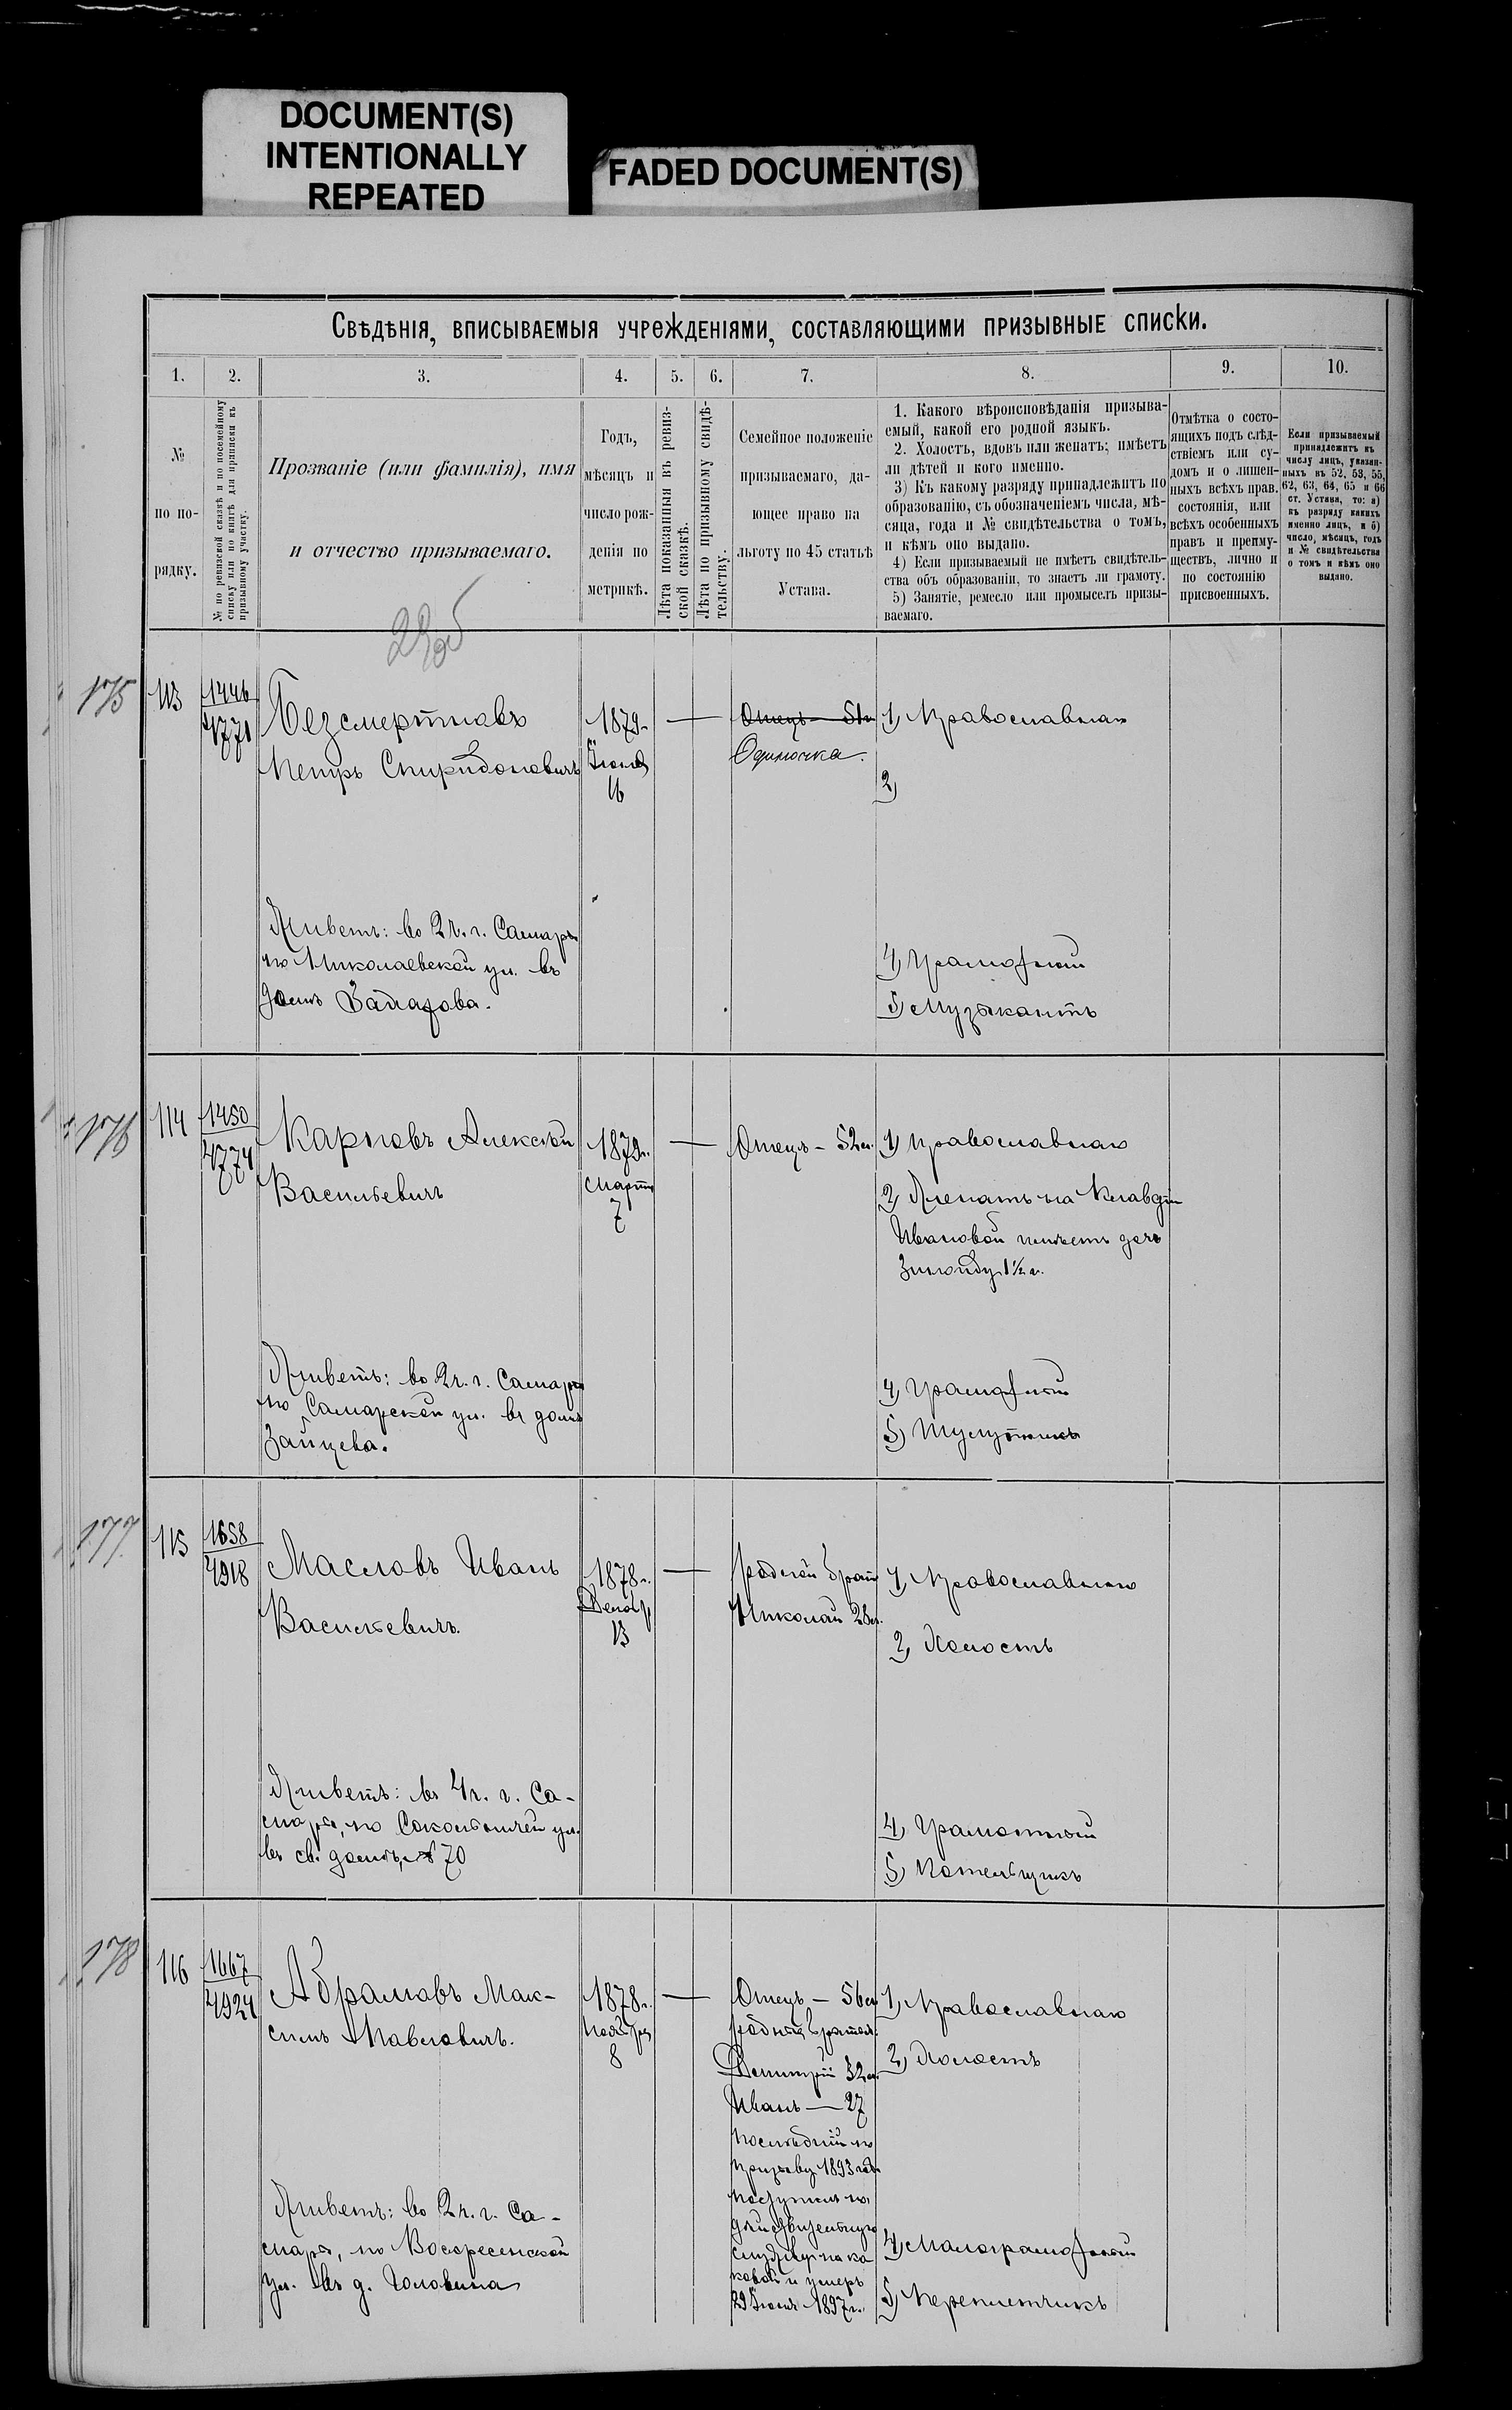 DOCUMENT(S)
INTENTIONALLY
REPEATED
FADED DOCUMENT(S)
Свѣдѣнія, вписываемыя учрежденіями, составляющими призывные списки.
1.
2.
3.
4.
5.
6.
7.
8.
9.
10.
№
по по-
рядку.
№ по ревизской сказкѣ и по посемейному
списку или по книгѣ для приписки къ
призывному участку.
Прозваніе (или фамилія), имя
и отчество призываемаго.
Годъ,
мѣсяцъ и
число рож-
денія по
метрикѣ.
Лѣта показанныя въ ревиз-
ской сказкѣ.
Лѣта по призывному свидѣ-
тельству.
Семейное положеніе
призываемаго, да-
ющее право на
льготу по 45 статьѣ
Устава.
1. Какого вѣроисповѣданія призыва-
емый, какой его родной языкъ.
2. Холостъ, вдовъ или женатъ; имѣетъ
ли дѣтей и кого именно.
3) Къ какому разряду принадлежитъ по
образованію, съ обозначеніемъ числа, мѣ-
сяца, года и № свидѣтельства о томъ,
и кѣмъ оно выдано.
4) Если призываемый не имѣетъ свидѣтель-
ства объ образованіи, то знаетъ ли грамоту.
5) Занятіе, ремесло или промыселъ призы-
ваемаго.
Отмѣтка о состо-
ящихъ подъ слѣд-
ствіемъ или су-
домъ и о лишен-
ныхъ всѣхъ прав.
состоянія, или
всѣхъ особенныхъ
правъ и преиму-
ществъ, лично и
по состоянію
присвоенныхъ.
Если призываемый
принадлежитъ къ
числу лицъ, указан-
ныхъ въ 52, 53, 55,
62, 63, 64, 65 и 66
ст. Устава, то: а)
къ разряду какихъ
именно лицъ, и б)
число, мѣсяцъ, годъ
и № свидѣтельства
о томъ и кѣмъ оно
выдано.
175
113
1446
4771
Безсмертновъ
Петръ Спиридоновичъ
1879 г.
Іюня
16
Отецъ — 51 г.
Одиночка.
1) Православнаго
2)
Живетъ: во 2 ч. г. Самары
по Николаевской ул. въ
домѣ
4) Грамотный
5) Музыкантъ
176
114
1450
4774
Карповъ Алексѣй
Васильевичъ
1879 г.
Марта
7
Отецъ – 52 л.
1) Православнаго
2) Женатъ на Клавдіи
Ивановой имѣетъ дочь
Зинаиду 1½ г.
Живетъ: во 2 ч. г. Самары
по Самарской ул. въ домѣ
Зайцева.
4) Грамотный
5)
177
115
1658
4918
Масловъ Иванъ
Васильевичъ.
1878 г.
Декабр.
13
родной братъ
Николай 28 л.
1) Православнаго
2) Холостъ
Живетъ: въ 4 ч. г. Са-
мары, по Сокольничей ул.
въ св. домѣ, № 70
4) Грамотный
5) Котельщикъ
178
116
1667
4924
Абрамовъ Мак-
симъ Павловичъ.
1878 г.
Ноября
8
Отецъ – 56 л.
родные братья:
Димитрій 32 л.
Иванъ — 27
послѣдній по
призыву 1893 года
поступилъ на
дѣйствительную
службу на ка
ковой и умеръ
29 Іюня 1897 г.
1) Православнаго
2) Холостъ
Живетъ: во 2 ч. г. Са-
мары, по Воскресенской
ул. въ д. Головина
4) Малограмотный
5) Переплетчикъ